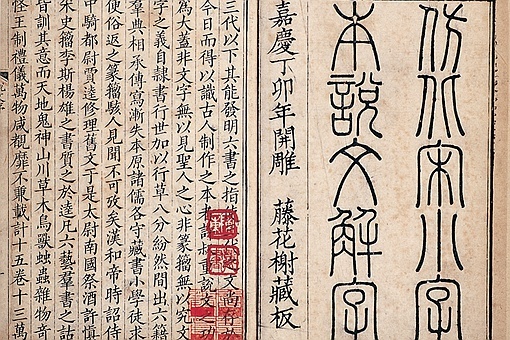 仿北宋小字
本說文解字
嘉慶丁卯年開雕 藤花榭藏板
三代以下其能發明六書之指 文尚存於
今日而得以識古人制作之本者許叔重說文之功
為大蓋非文字無以見聖人之心非篆籀無以究文
字之義自隸書行世加以行草八分紛然間出六籍
羣典相承傳寫漸失本原諸儒各守藏書小學徒求
便俗返之篆籀駭人見聞不可攷矣漢和帝時詔侍
中騎都尉賈逵修理舊文于是太尉南國祭酒許慎
采史籀李斯楊雄之書質之於逵凡六藝羣書之詁
皆訓其意而天地鬼神山川草木鳥獸䖵蟲雜物奇
怪王制禮儀萬物咸覩靡不兼載計十五卷十三萬